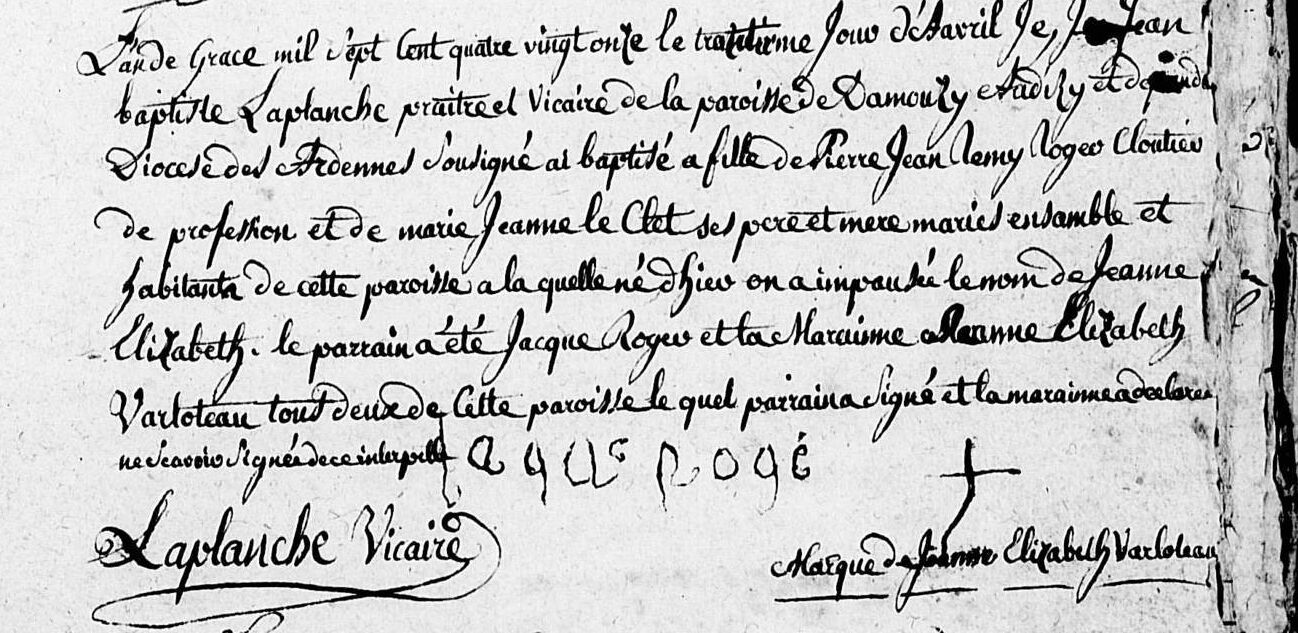 L'an de Grace mil sept Cent quatre vingt onze le trantième Jour d'Avril Je, Jean
baptiste Laplanche praitre et Vicaire de la paroisse de Damouzy et
Diocese des Ardennes Sousigné ai baptisé a fille de Pierre Jean Remy Roger Cloutier
de profession et de marie Jeanne le Clet ses pere et mere mariés ensamble et
habitants de cette paroisse a la quelle né d'hier on a impausée le nom de Jeanne
Elizabeth. le parrain a été Jacque Roger et la Maraine Jeanne Elizabeth
Varloteau tout deux de Cette paroisse le quel parrain a Signé et la maraine a declarer
ne scavoir Signée de ce interpellé Jaque Rogé
Laplanche Vicaire
Marque de Jeanne Elizabeth Varloteau